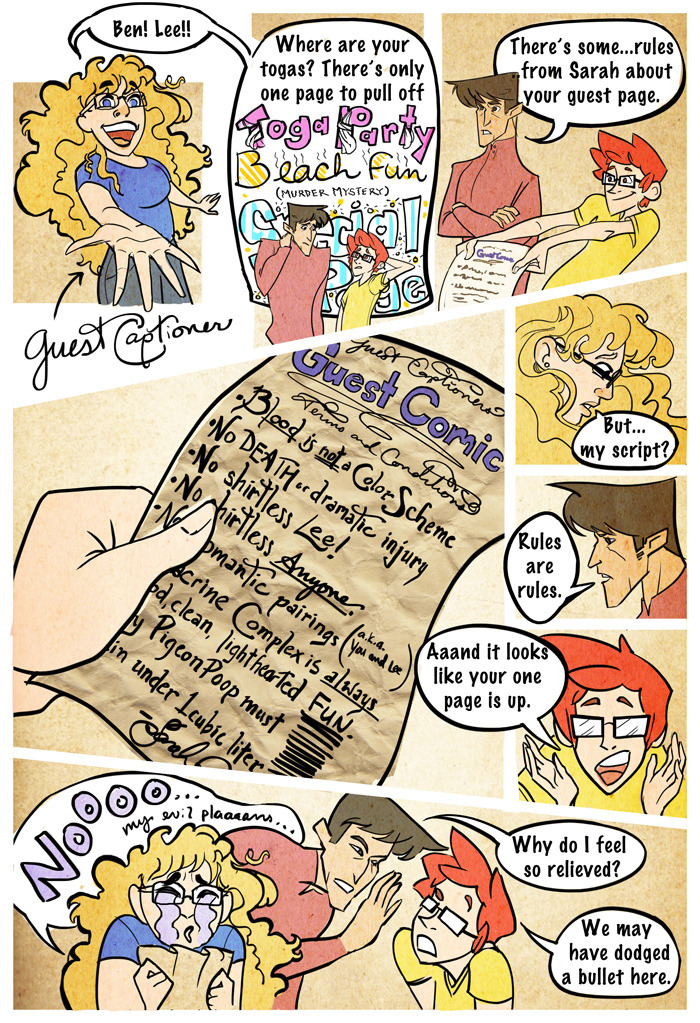 Ben! Lee!!
Where are your
togas? There's only
one page to pull off
Toga Party
Beach Fun
(MURDER MYSTERY)
Special
Page
There's some...rules
from Sarah about
your guest page.
Guest Comic
guest Captioner
Guest Captioners
Guest Comic
Terms and Conditions
•Blood is not a Color Scheme
•No DEATH or dramatic injury
•No shirtless Lee!
•No shirtless Anyone.
romantic pairings (a.k.a.
You and Lee)
Complex is always
clean, lighthearted FUN
PigeonPoop must
in under 1 cubic liter
But...
my script?
Rules
are
rules.
Aaand it looks
like your one
page is up.
NOOOO...
my evil plaaaans...
Why do I feel
so relieved?
We may
have dodged
a bullet here.